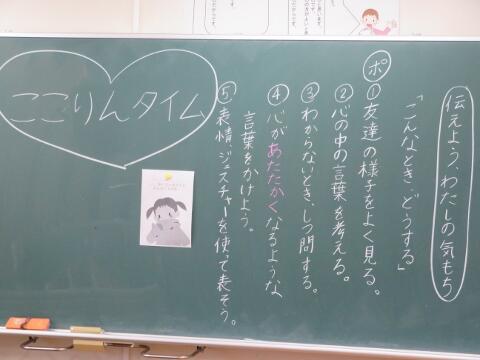 伝えよう、わたしの気もち
「こんなとき、どうする」
ポ
①友達の様子をよく見る。
②心の中の言葉を考える。
③わからないとき、しつ問する。
④心があたたかくなるような
言葉をかけよう。
⑤表情、ジェスチャーを使って表そう。
ここりんタイム